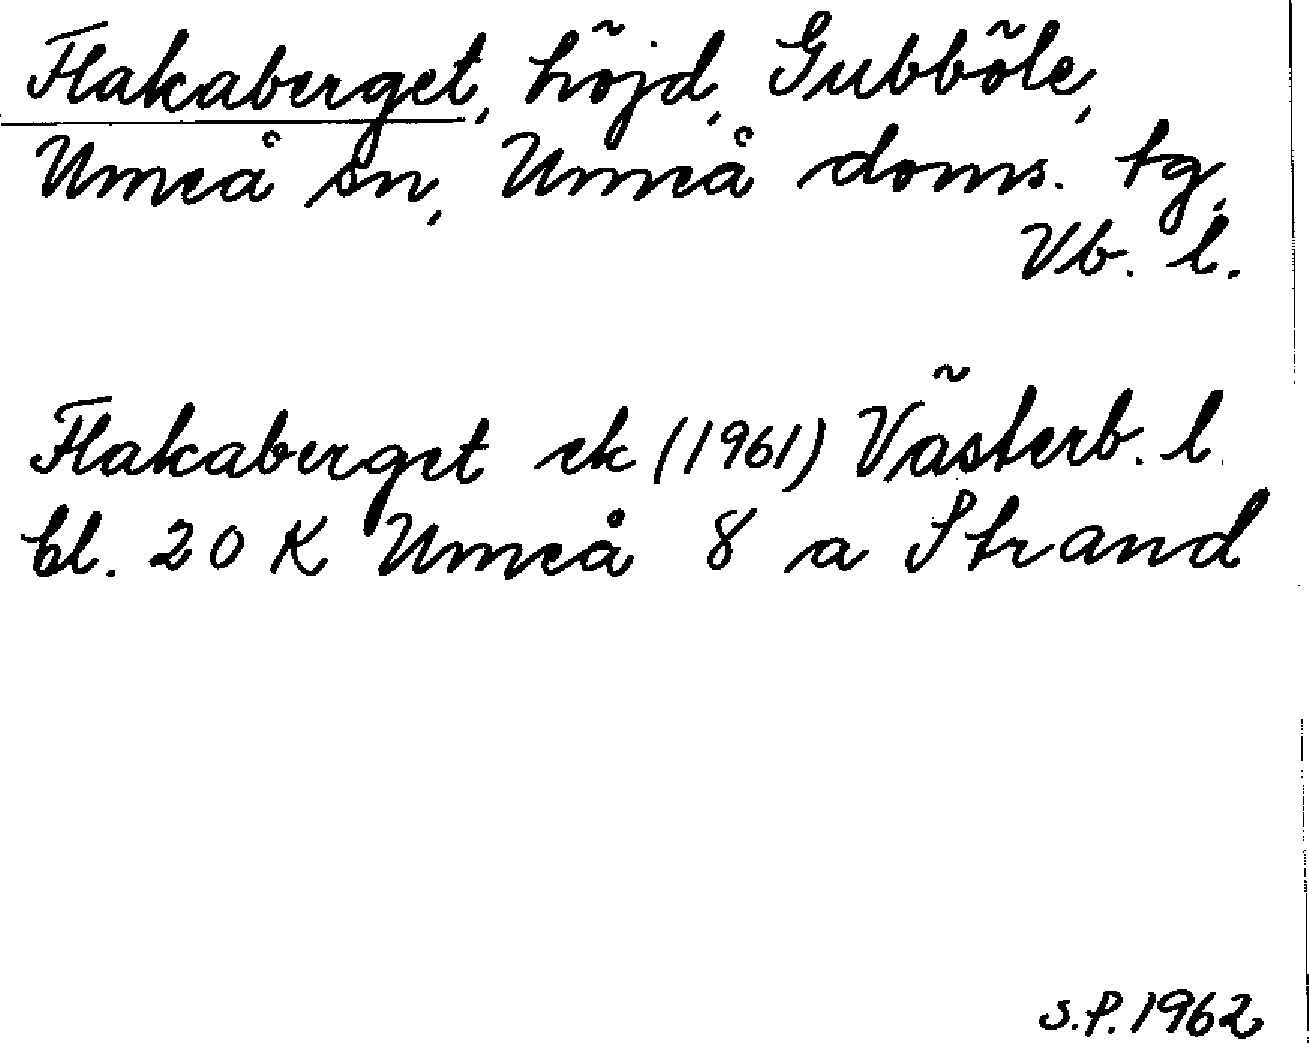 Flakaberget, höjd, Gubböle,
Umeå sn, Umeå doms. tg,
Vb. l.
Flakaberget ek (1961) Västerb. l.
bl. 20 K Umeå 8 a Strand
S.P. 1962